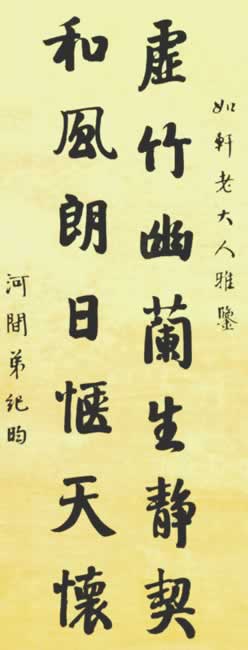 如軒老大人雅鑒
虛竹幽蘭生靜契
和風朗日愜天懷
河間弟紀昀